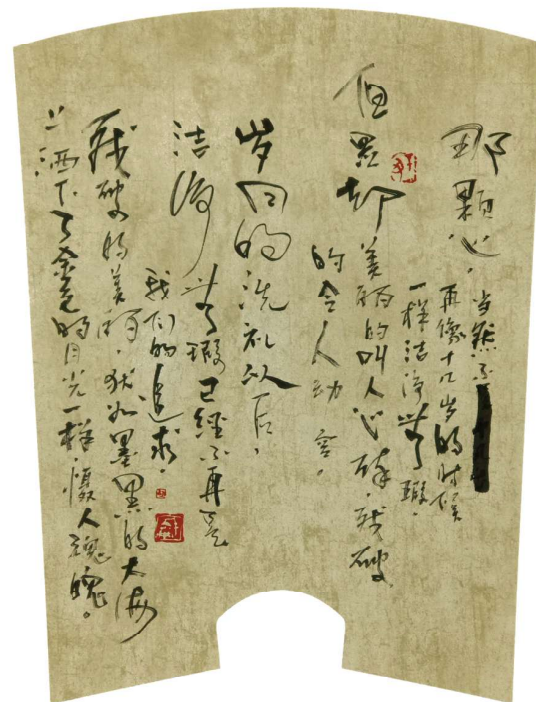 那颗心，
当然不
再像十几岁的时候
一样洁净無瑕。
但 却美丽的叫人心碎，残破
的令人动容。
岁月的洗礼以后，
洁净無瑕已經不再是
我们的追求。
残破的美丽，犹如墨黑的大海
上洒下了金色的月光一样，慑人魂魄。